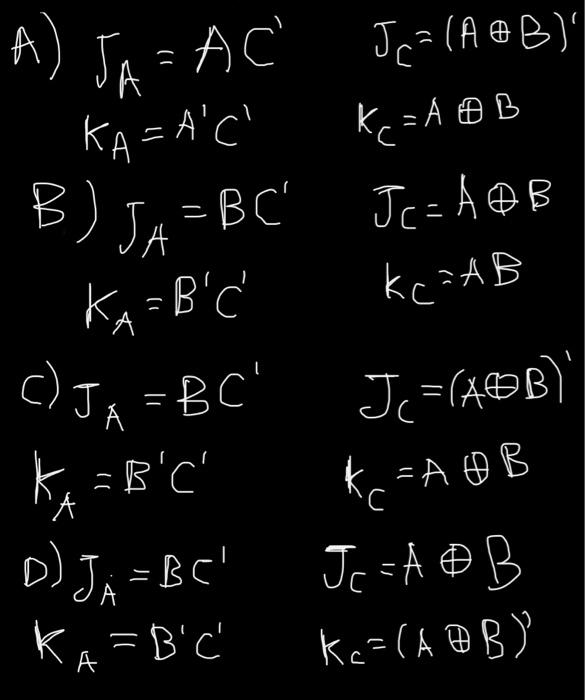 A) J_A = AC' J_C = (A ⊕ B)'
K_A = A'C' K_C = A ⊕ B
B) J_A = BC' J_C = A ⊕ B
K_A = B'C' K_C = AB
C) J_A = BC' J_C = (A⊕B)'
K_A = B'C' K_C = A ⊕ B
D) J_A = BC' J_C = A ⊕ B
K_A = B'C' K_C = (A ⊕ B)'